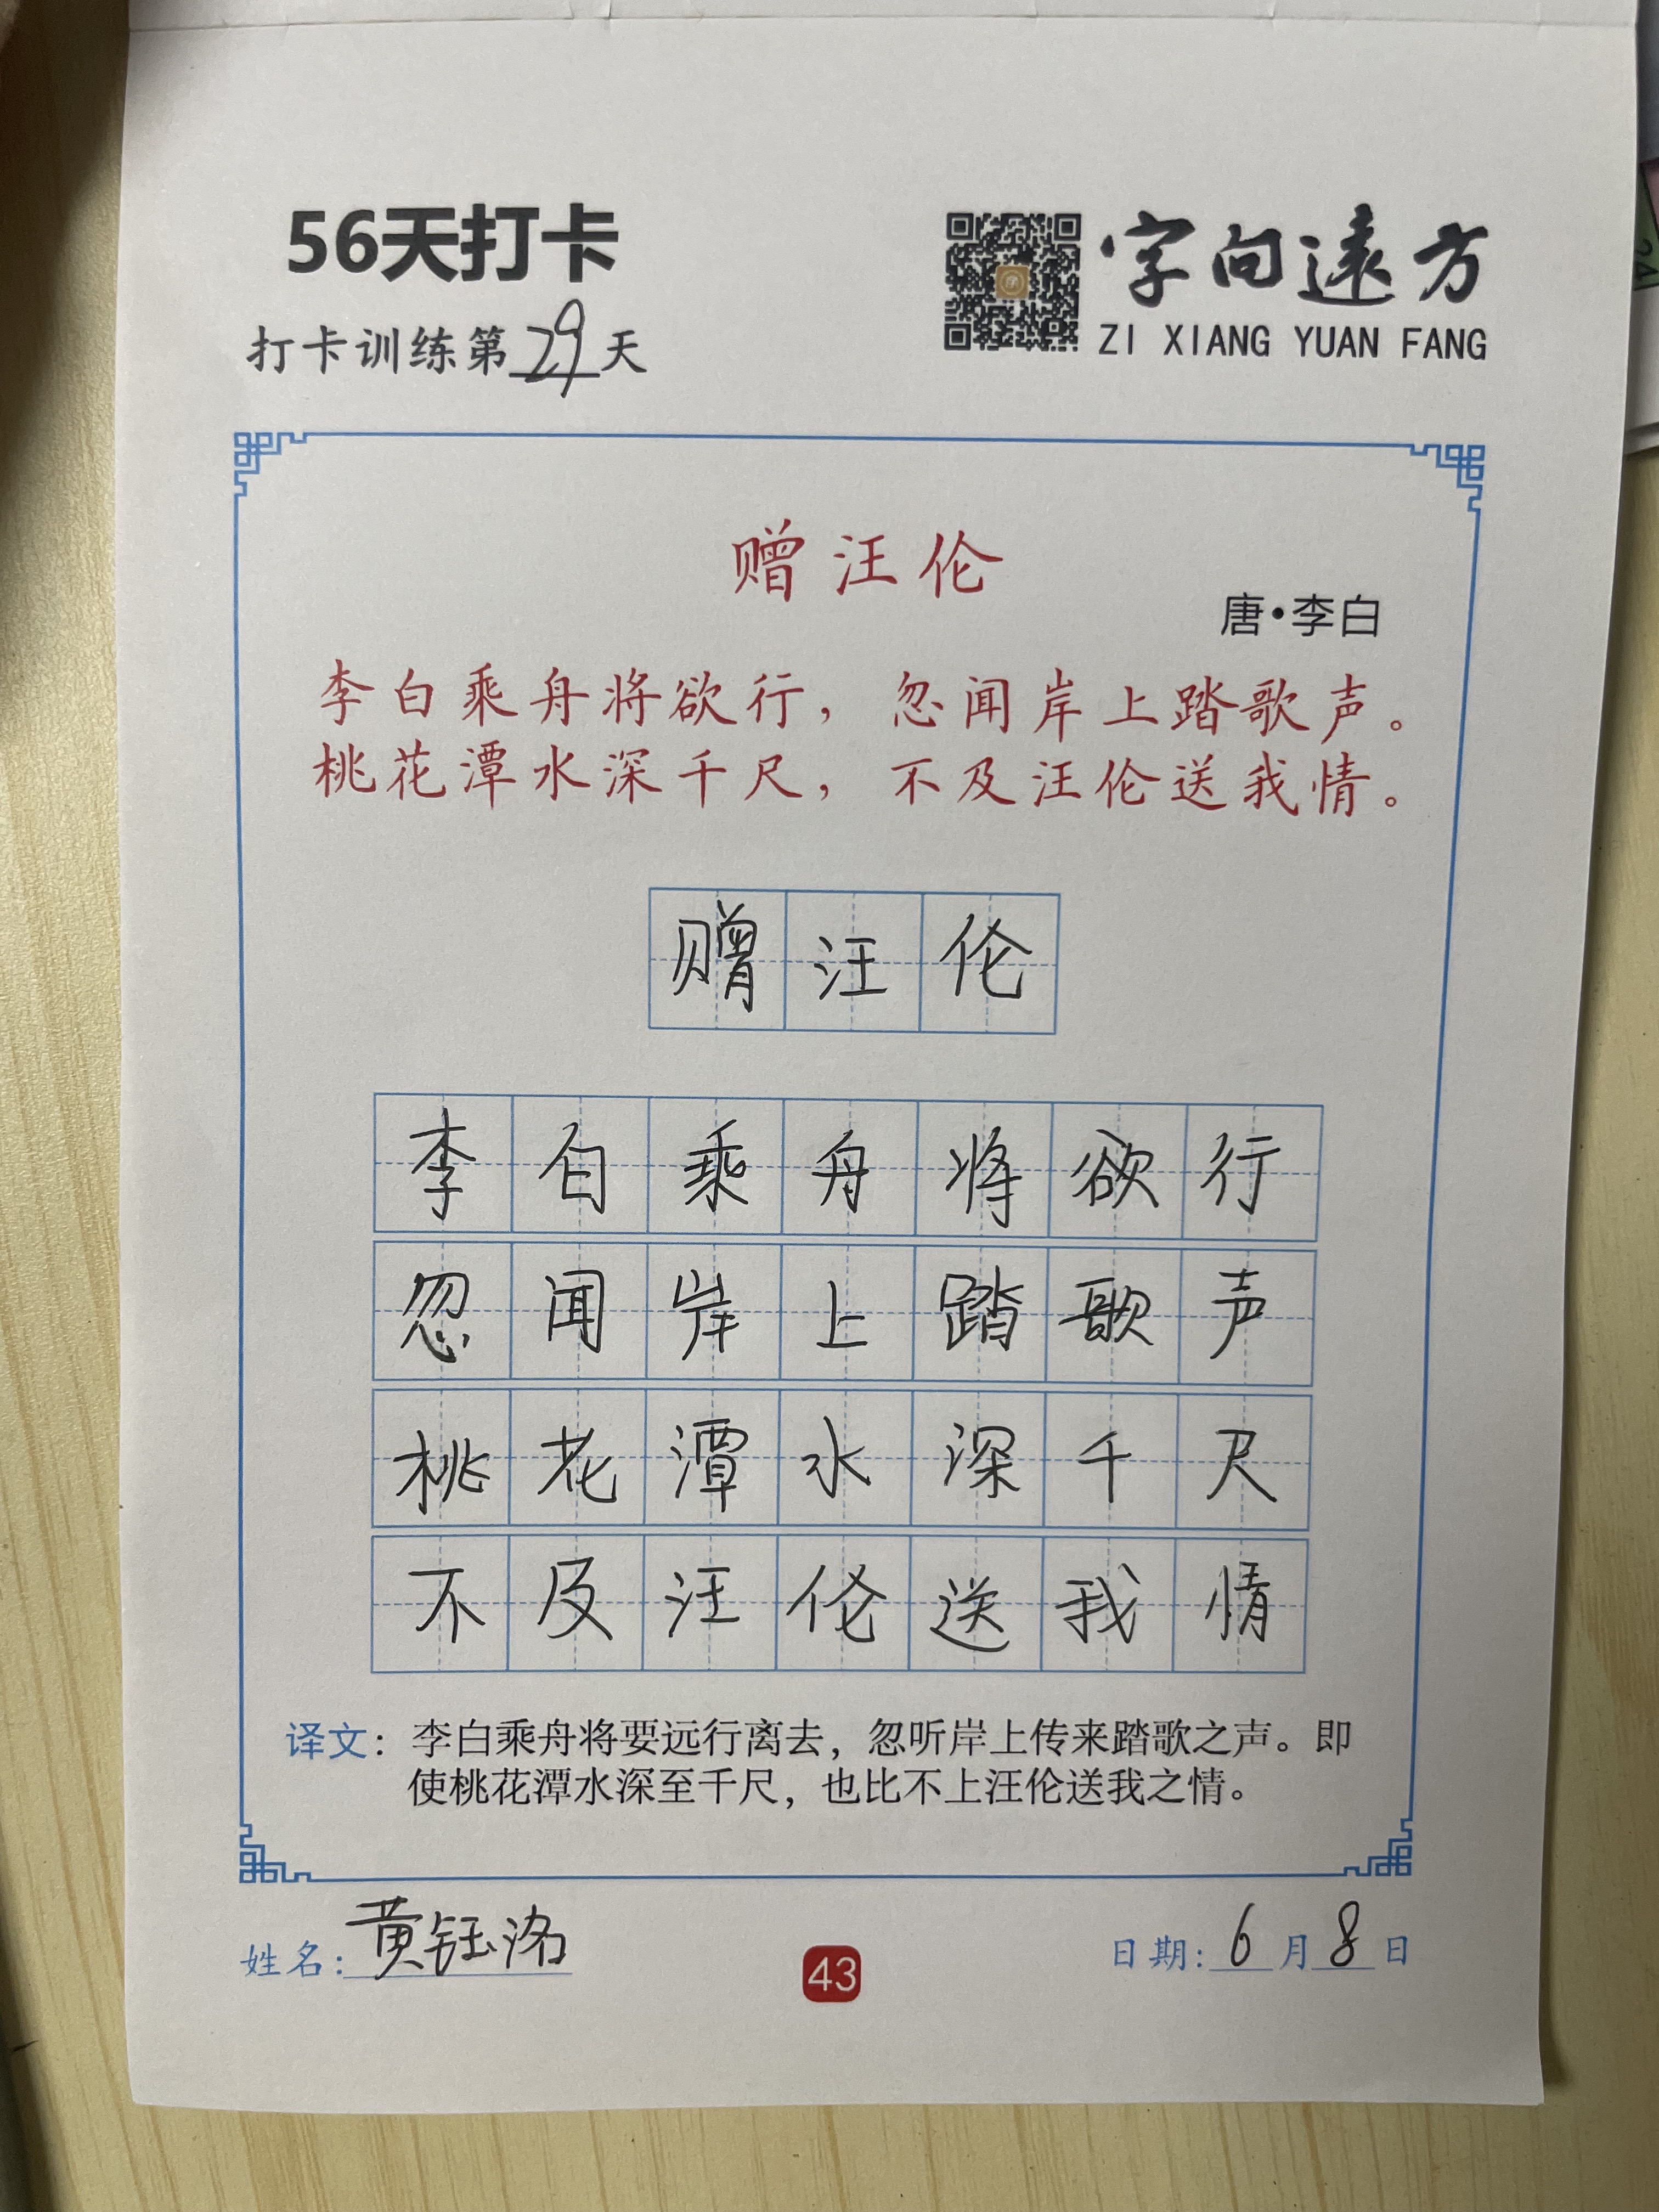 56天打卡
字向遠方
打卡训练第29天
ZI XIANG YUAN FANG
赠汪伦
唐·李白
李白乘舟将欲行，忽闻岸上踏歌声。
桃花潭水深千尺，不及汪伦送我情。
赠汪伦
李白乘舟将欲行
忽闻岸上踏歌声
桃花潭水深千尺
不及汪伦送我情
译文：李白乘舟将要远行离去，忽听岸上传来踏歌之声。即
使桃花潭水深至千尺，也比不上汪伦送我之情。
姓名：黄钰洺
43
日期：6月8日
24